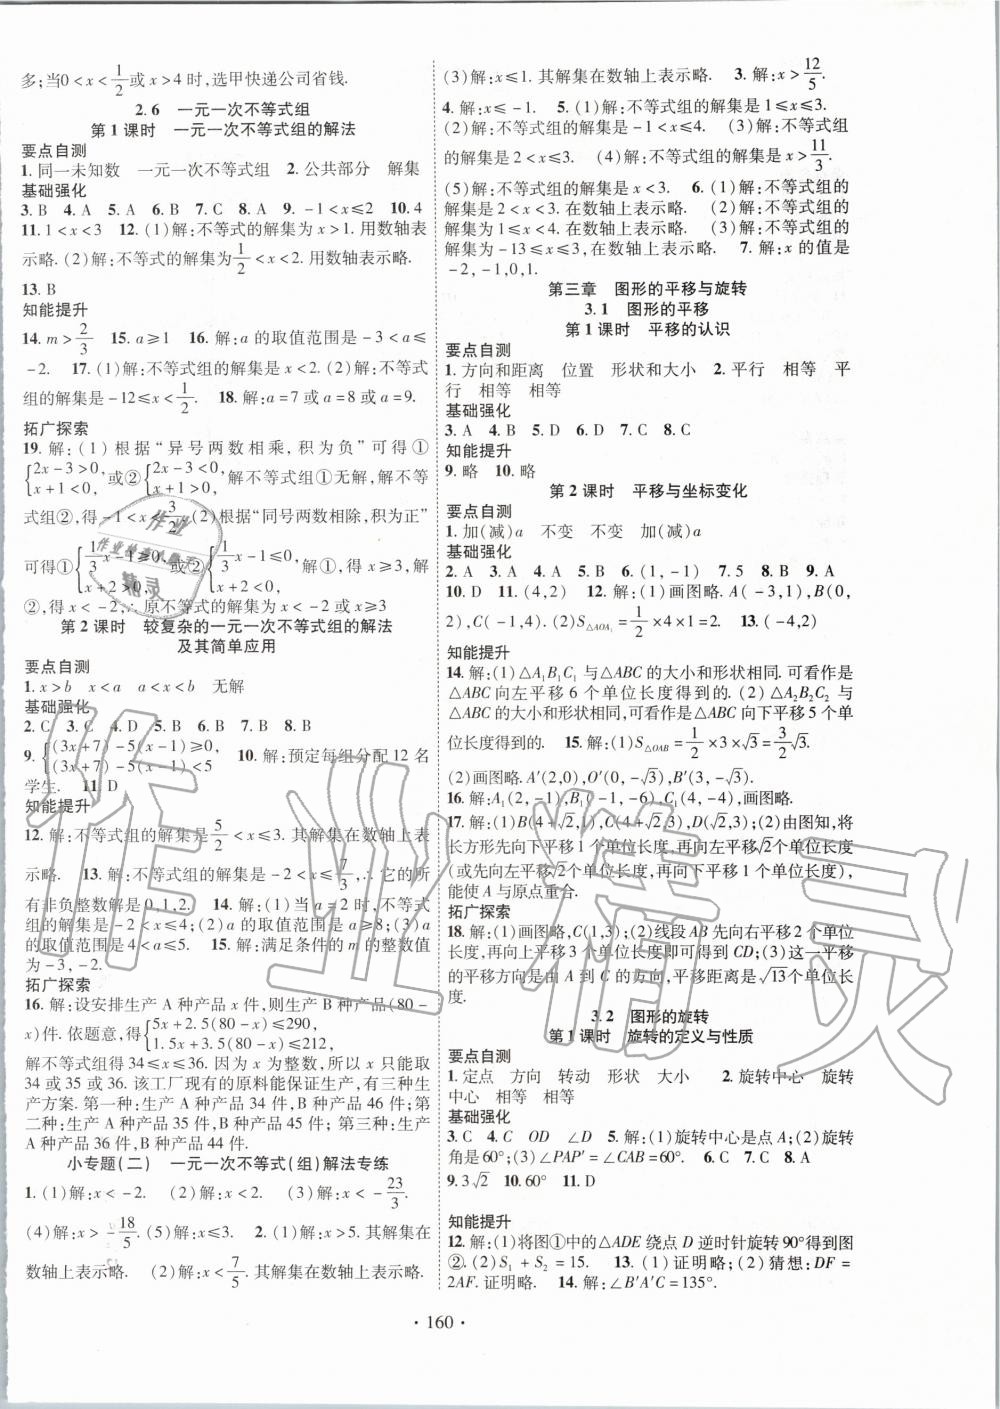 多;当0<x<1/2或x>4时,选甲快递公司省钱.
2.6　一元一次不等式组
第1课时　一元一次不等式组的解法
要点自测
1.同一未知数　一元一次不等式组　2.公共部分　解集
基础强化
3.B　4.A　5.A　6.B　7.C　8.A　9.-1<x≤2　10.4
11.1<x<3　12.(1)解:不等式的解集为x>1.用数轴表
示略.(2)解:不等式的解集为1/2<x<2.用数轴表示略.
13.B
知能提升
14.m>2/3　15.a≥1　16.解:a的取值范围是-3<a≤
-2.　17.(1)解:不等式组的解集是x<2.(2)解:不等式
组的解集是-12≤x<1/2.　18.解:a=7或a=8或a=9.
拓广探索
19.解:(1)根据“异号两数相乘,积为负”可得①
{2x-3>0, x+1<0,或②{2x-3<0, x+1>0.解不等式组①无解,解不等
式组②,得-1<x<3/2.(2)根据“同号两数相除,积为正”
可得①{1/3x-1≥0, x+2>0,或②{1/3x-1≤0, x+2<0,解①,得x≥3,解
②,得x<-2,∴原不等式的解集为x<-2或x≥3
第2课时　较复杂的一元一次不等式组的解法
及其简单应用
要点自测
1.x>b　x<a　a<x<b　无解
基础强化
2.C　3.C　4.D　5.B　6.B　7.B　8.B
9.{(3x+7)-5(x-1)≥0, (3x+7)-5(x-1)<5　10.解:预定每组分配12名
学生.　11.D
知能提升
12.解:不等式组的解集是5/2<x≤3.其解集在数轴上表
示略.　13.解:不等式组的解集是-2<x≤7/3,∴它的所
有非负整数解是0,1,2.　14.解:(1)当a=2时,不等式
组的解集是-2<x≤4;(2)a的取值范围是a≥8;(3)a
的取值范围是4<a≤5.　15.解:满足条件的m的整数值
为-3,-2.
拓广探索
16.解:设安排生产A种产品x件,则生产B种产品(80-
x)件.依题意,得{5x+2.5(80-x)≤290, 1.5x+3.5(80-x)≤212,
解不等式组得34≤x≤36.因为x为整数,所以x只能取
34或35或36.该工厂现有的原料能保证生产,有三种生
产方案.第一种:生产A种产品34件,B种产品46件;第
二种:生产A种产品35件,B种产品45件;第三种:生产
A种产品36件,B种产品44件.
小专题(二)　一元一次不等式(组)解法专练
1.(1)解:x<-2.　(2)解:x<2.　(3)解:x<-23/3.
(4)解:x>-18/5.　(5)解:x≤3.　2.(1)解:x>5.其解集在
数轴上表示略.　(2)解:x<7/5.其解集在数轴上表示略.
(3)解:x≤1.其解集在数轴上表示略.　3.解:x>12/5.
4.解:x≤-1.　5.(1)解:不等式组的解集是1≤x≤3.
(2)解:不等式组的解集是-1<x≤4.　(3)解:不等式组
的解集是2<x≤3.　(4)解:不等式组的解集是x>11/3.
(5)解:不等式组的解集是x<3.　6.(1)解:不等式组的
解集为2<x<3.在数轴上表示略.　(2)解:不等式组的解集
为1≤x<4.在数轴上表示略.　(3)解:不等式组的
解集为-13≤x≤3,在数轴上表示略.　7.解:x的值是
-2,-1,0,1.
第三章　图形的平移与旋转
3.1　图形的平移
第1课时　平移的认识
要点自测
1.方向和距离　位置　形状和大小　2.平行　相等　平
行　相等　相等
基础强化
3.A　4.B　5.D　6.D　7.C　8.C
知能提升
9.略　10.略
第2课时　平移与坐标变化
要点自测
1.加(减)a　不变　不变　加(减)a
基础强化
2.A　3.A　4.A　5.D　6.(1,-1)　7.5　8.B　9.A
10.D　11.(4,2)　12.解:(1)画图略.A(-3,1),B(0,
2),C(-1,4).(2)S△AOA1=1/2×4×1=2.　13.(-4,2)
知能提升
14.解:(1)△A1B1C1与△ABC的大小和形状相同.可看作是
△ABC向左平移6个单位长度得到的.(2)△A2B2C2与
△ABC的大小和形状相同,可看作是△ABC向下平移5个单
位长度得到的.　15.解:(1)S△OAB=1/2×3×√3=3/2√3.
(2)画图略.A′(2,0),O′(0,-√3),B′(3,-√3).
16.解:A1(2,-1),B1(-1,-6),C1(4,-4),画图略.
17.解:(1)B(4+√2,1),C(4+√2,3),D(√2,3);(2)由图知,将
长方形先向下平移1个单位长度,再向左平移√2个单位长度
(或先向左平移√2个单位长度,再向下平移1个单位长度),
能使A与原点重合.
拓广探索
18.解:(1)画图略,C(1,3);(2)线段AB先向右平移2个单位
长度,再向上平移1个单位长度即可得到CD;(3)这一平移
的平移方向是由A到C的方向,平移距离是√13个单位长
度.
3.2　图形的旋转
第1课时　旋转的定义与性质
要点自测
1.定点　方向　转动　形状　大小　2.旋转中心　旋转
中心　相等　相等
基础强化
3.C　4.C　OD　∠D　5.解:(1)旋转中心是点A;(2)旋转
角是60°;(3)∠PAP′=∠CAB=60°　6.C　7.C　8.A
9.3√2　10.60°　11.D
知能提升
12.解:(1)将图①中的△ADE绕点D逆时针旋转90°得到图
②.(2)S1+S2=15.　13.(1)证明略;(2)猜想:DF=
2AF.证明略.　14.解:∠B′A′C=135°.
·160·
作业精灵
作业
精灵